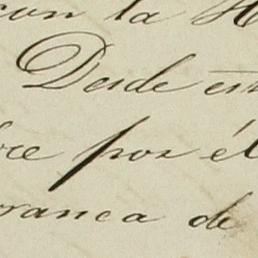 con la H
Desde est
bre por él
rranca de